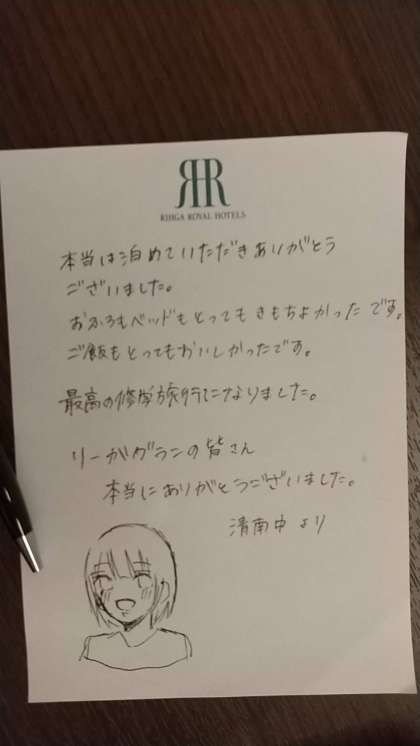 RIHGA ROYAL HOTELS
本当は泊めていただきありがとう
ございました。
おふろもベッドもとってもきもちよかったです。
ご飯もとってもおいしかったです。
最高の修学旅行になりました。
リーガグランの皆さん
本当にありがとうございました。
清南中より